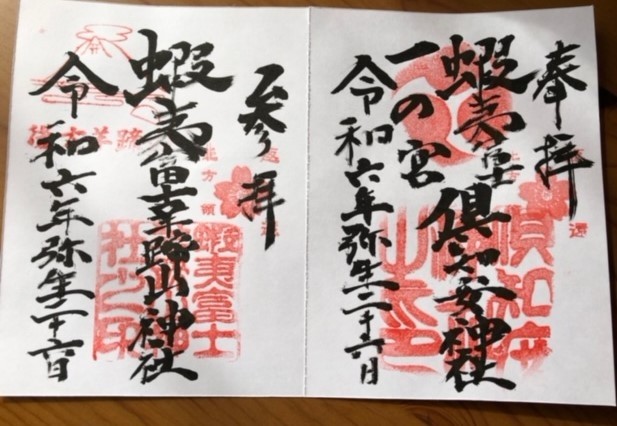 奉拝
蝦夷富士倶知安神社
一の宮
令和六年弥生二十六日
参拝
蝦夷富士羊蹄山神社
令和六年弥生二十六日
蝦夷富士
社之印